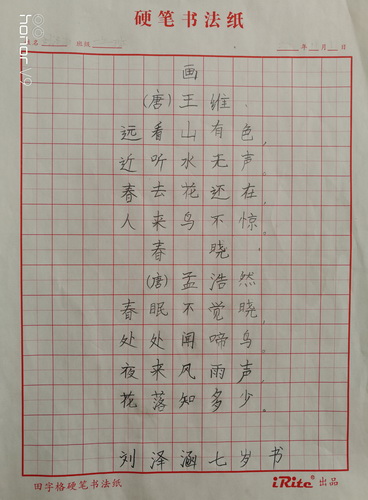 硬笔书法纸
honor V9
姓名 班级 年 月 日
画
(唐)王维
远看山有色,
近听水无声。
春去花还在,
人来鸟不惊。
春晓
(唐)孟浩然
春眠不觉晓,
处处闻啼鸟。
夜来风雨声,
花落知多少。
刘泽涵七岁书
田字格硬笔书法纸 iRite 出品